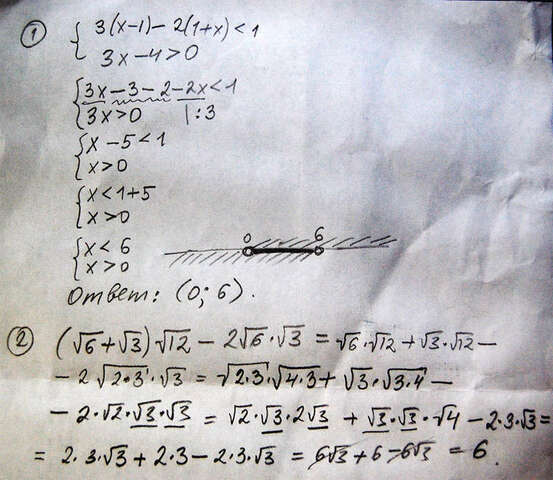 ① { 3(x-1) - 2(1+x) < 1
3x - 4 > 0
{ 3x - 3 - 2 - 2x < 1
3x > 0 | : 3
{ x - 5 < 1
x > 0
{ x < 1 + 5
x > 0
{ x < 6
x > 0
0 6
Ответ: (0; 6).
② (√6 + √3) √12 - 2√6 · √3 = √6 · √12 + √3 · √12 -
- 2 √2·3 · √3 = √2·3 · √4·3 + √3 · √3·4 -
- 2 · √2 · √3 · √3 = √2 · √3 · 2√3 + √3 · √3 · √4 - 2·3·√3 =
= 2·3·√3 + 2·3 - 2·3·√3 = 6√3 + 6 - 6√3 = 6.